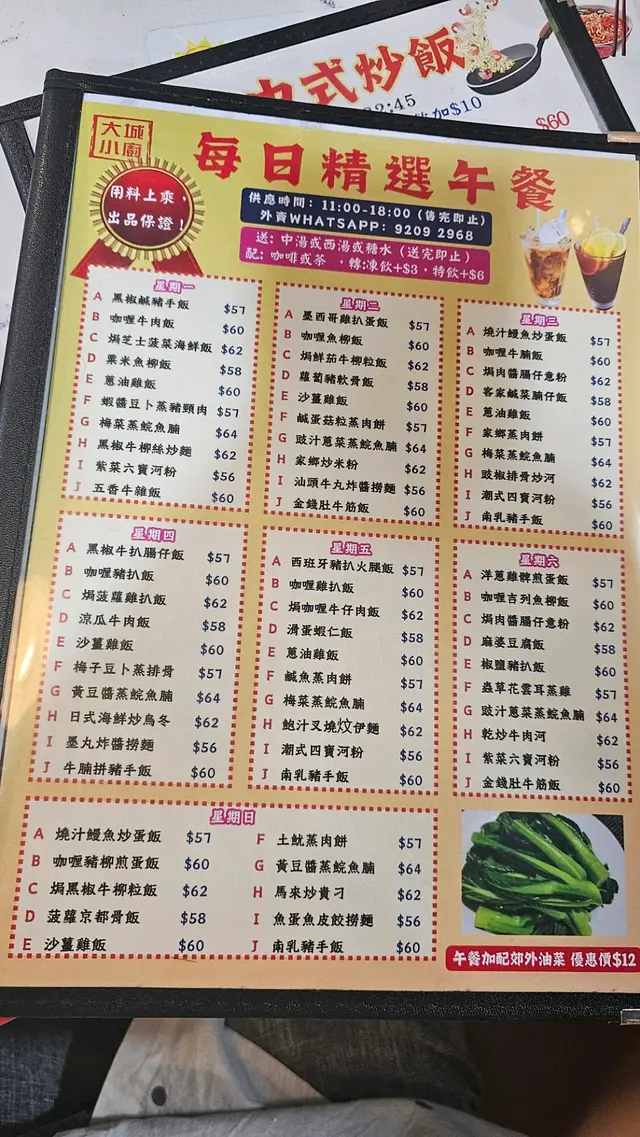 中式炒飯
2:45
加$10
$60
大城
小廚
用料上乘，
出品保證！
每日精選午餐
供應時間：11:00-18:00（售完即止）
外賣WHATSAPP: 9209 2968
送：中湯或西湯或糖水（送完即止）
配：咖啡或茶 ，轉:凍飲+$3，特飲+$6
星期一
A 黑椒鹹豬手飯 $57
B 咖喱牛肉飯 $60
C 焗芝士菠菜海鮮飯 $62
D 粟米魚柳飯 $58
E 蔥油雞飯 $60
F 蝦醬豆卜蒸豬頸肉 $57
G 梅菜蒸鯇魚腩 $64
H 黑椒牛柳絲炒麵 $62
I 紫菜六寶河粉 $56
J 五香牛雜飯 $60
星期二
A 墨西哥雞扒蛋飯 $57
B 咖喱魚柳飯 $60
C 焗鮮茄牛柳粒飯 $62
D 蘿蔔豬軟骨飯 $58
E 沙薑雞飯 $60
F 鹹蛋菇粒蒸肉餅 $57
G 豉汁蔥菜蒸鯇魚腩 $64
H 家鄉炒米粉 $62
I 汕頭牛丸炸醬撈麵 $56
J 金錢肚牛筋飯 $60
星期三
A 燒汁鰻魚炒蛋飯 $57
B 咖喱牛腩飯 $60
C 焗肉醬腸仔意粉 $62
D 客家鹹菜腩仔飯 $58
E 蔥油雞飯 $60
F 家鄉蒸肉餅 $57
G 梅菜蒸鯇魚腩 $64
H 豉椒排骨炒河 $62
I 潮式四寶河粉 $56
J 南乳豬手飯 $60
星期四
A 黑椒牛扒腸仔飯 $57
B 咖喱豬扒飯 $60
C 焗菠蘿雞扒飯 $62
D 涼瓜牛肉飯 $58
E 沙薑雞飯 $60
F 梅子豆卜蒸排骨 $57
G 黃豆醬蒸鯇魚腩 $64
H 日式海鮮炒烏冬 $62
I 墨丸炸醬撈麵 $56
J 牛腩拼豬手飯 $60
星期五
A 西班牙豬扒火腿飯 $57
B 咖喱雞扒飯 $60
C 焗咖喱牛仔肉飯 $62
D 滑蛋蝦仁飯 $58
E 蔥油雞飯 $60
F 鹹魚蒸肉餅 $57
G 梅菜蒸鯇魚腩 $64
H 鮑汁叉燒炆伊麵 $62
I 潮式四寶河粉 $56
J 南乳豬手飯 $60
星期六
A 洋蔥雞髀煎蛋飯 $57
B 咖喱吉列魚柳飯 $60
C 焗肉醬腸仔意粉 $62
D 麻婆豆腐飯 $58
E 椒鹽豬扒飯 $60
F 蟲草花雲耳蒸雞 $57
G 豉汁蔥菜蒸鯇魚腩 $64
H 乾炒牛肉河 $62
I 紫菜六寶河粉 $56
J 金錢肚牛筋飯 $60
星期日
A 燒汁鰻魚炒蛋飯 $57
B 咖喱豬柳煎蛋飯 $60
C 焗黑椒牛柳粒飯 $62
D 菠蘿京都骨飯 $58
E 沙薑雞飯 $60
F 土魷蒸肉餅 $57
G 黃豆醬蒸鯇魚腩 $64
H 馬來炒貴刁 $62
I 魚蛋魚皮餃撈麵 $56
J 南乳豬手飯 $60
午餐加配郊外油菜 優惠價$12